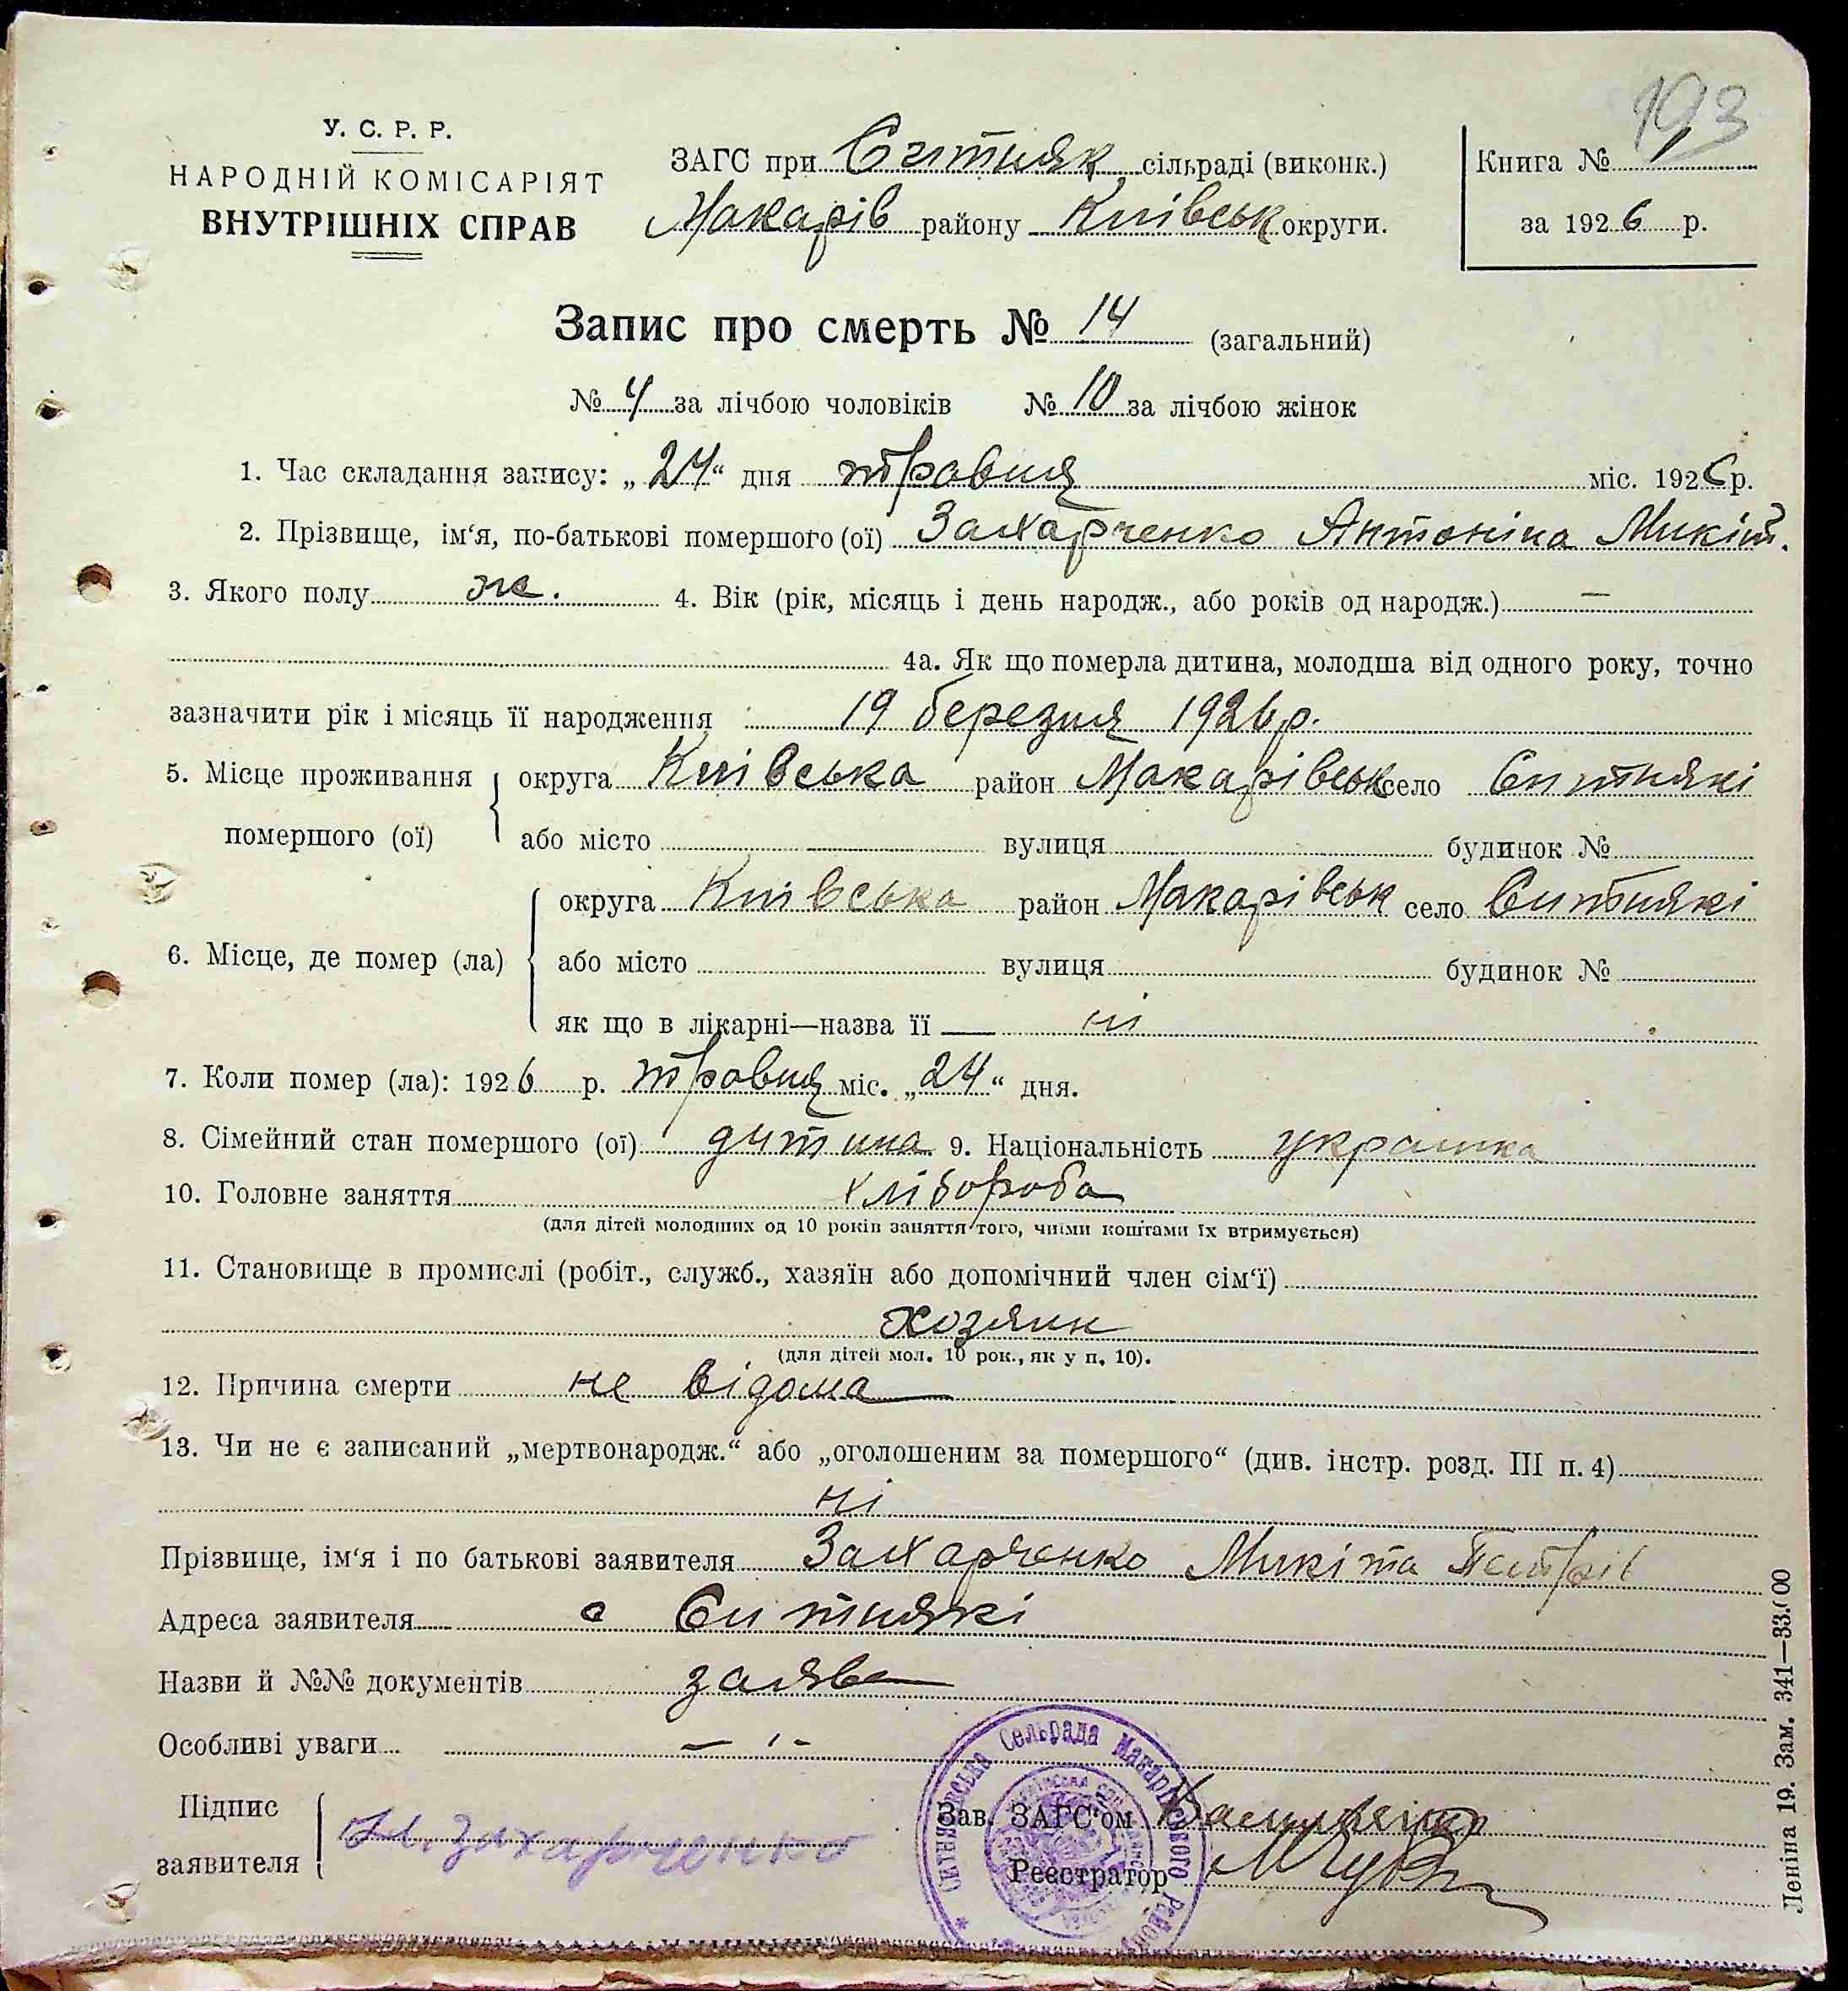 193
У. С. Р. Р.
НАРОДНІЙ КОМІСАРІЯТ
ВНУТРІШНІХ СПРАВ
ЗАГС при Ситняк сільраді (виконк.)
Макарів району Київськ округи.
Книга № 1
за 1926 р.
Запис про смерть № 14 (загальний)
№ 4 за лічбою чоловіків № 10 за лічбою жінок
1. Час складання запису: „24“ дня травня міс. 1926 р.
2. Прізвище, ім‘я, по-батькові помершого (ої) Захарченко Антоніна Микіт.
3. Якого полу же. 4. Вік (рік, місяць і день народж., або років од народж.) —
4а. Як що померла дитина, молодша від одного року, точно
зазначити рік і місяць її народження 19 березня 1926 р.
5. Місце проживання помершого (ої) округа Київська район Макарівськ село Ситнякі
або місто вулиця будинок №
6. Місце, де помер (ла) округа Київська район Макарівськ село Ситнякі
або місто вулиця будинок №
як що в лікарні—назва її — ні
7. Коли помер (ла): 1926 р. травня міс. „24“ дня.
8. Сімейний стан помершого (ої) дитина 9. Національність украінка
10. Головне заняття хлібороба
(для дітей молодших од 10 років заняття того, чиїми коштами їх втримується)
11. Становище в промислі (робіт., служб., хазяїн або допомічний член сім‘ї)
хозяин
(для дітей мол. 10 рок., як у п. 10).
12. Причина смерти не відома
13. Чи не є записаний „мертвонародж.“ або „оголошеним за помершого“ (див. інстр. розд. III п. 4)
ні
Прізвище, ім‘я і по батькові заявителя Захарченко Микіта Петрів
Адреса заявителя с Ситнякі
Назви й №№ документів заява
Особливі уваги — ·· -
Підпис заявителя М. Захарченко
Зав. ЗАГС‘ом
Реєстратор
Ситняківська Сельрада Макарівського Району
Леніна 19. Зам. 341—33.000